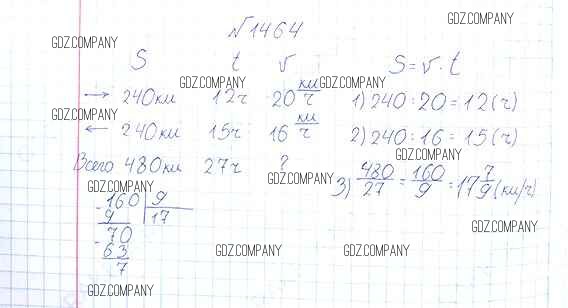 GDZ.COMPANY
№1464
GDZ.COMPANY
S t v S = v · t
GDZ.COMPANY GDZ.COMPANY
→ 240км 12ч 20 км/ч 1) 240 : 20 = 12 (ч)
GDZ.COMPANY
← 240км 15ч 16 км/ч 2) 240 : 16 = 15 (ч)
GDZ.COMPANY
Всего 480км 27ч ? 3) 480/27 = 160/9 = 17 7/9 (км/ч)
GDZ.COMPANY GDZ.COMPANY
- 160 | 9
9 | 17
GDZ.COMPANY
- 70
63
GDZ.COMPANY GDZ.COMPANY
7
GDZ.COMPANY